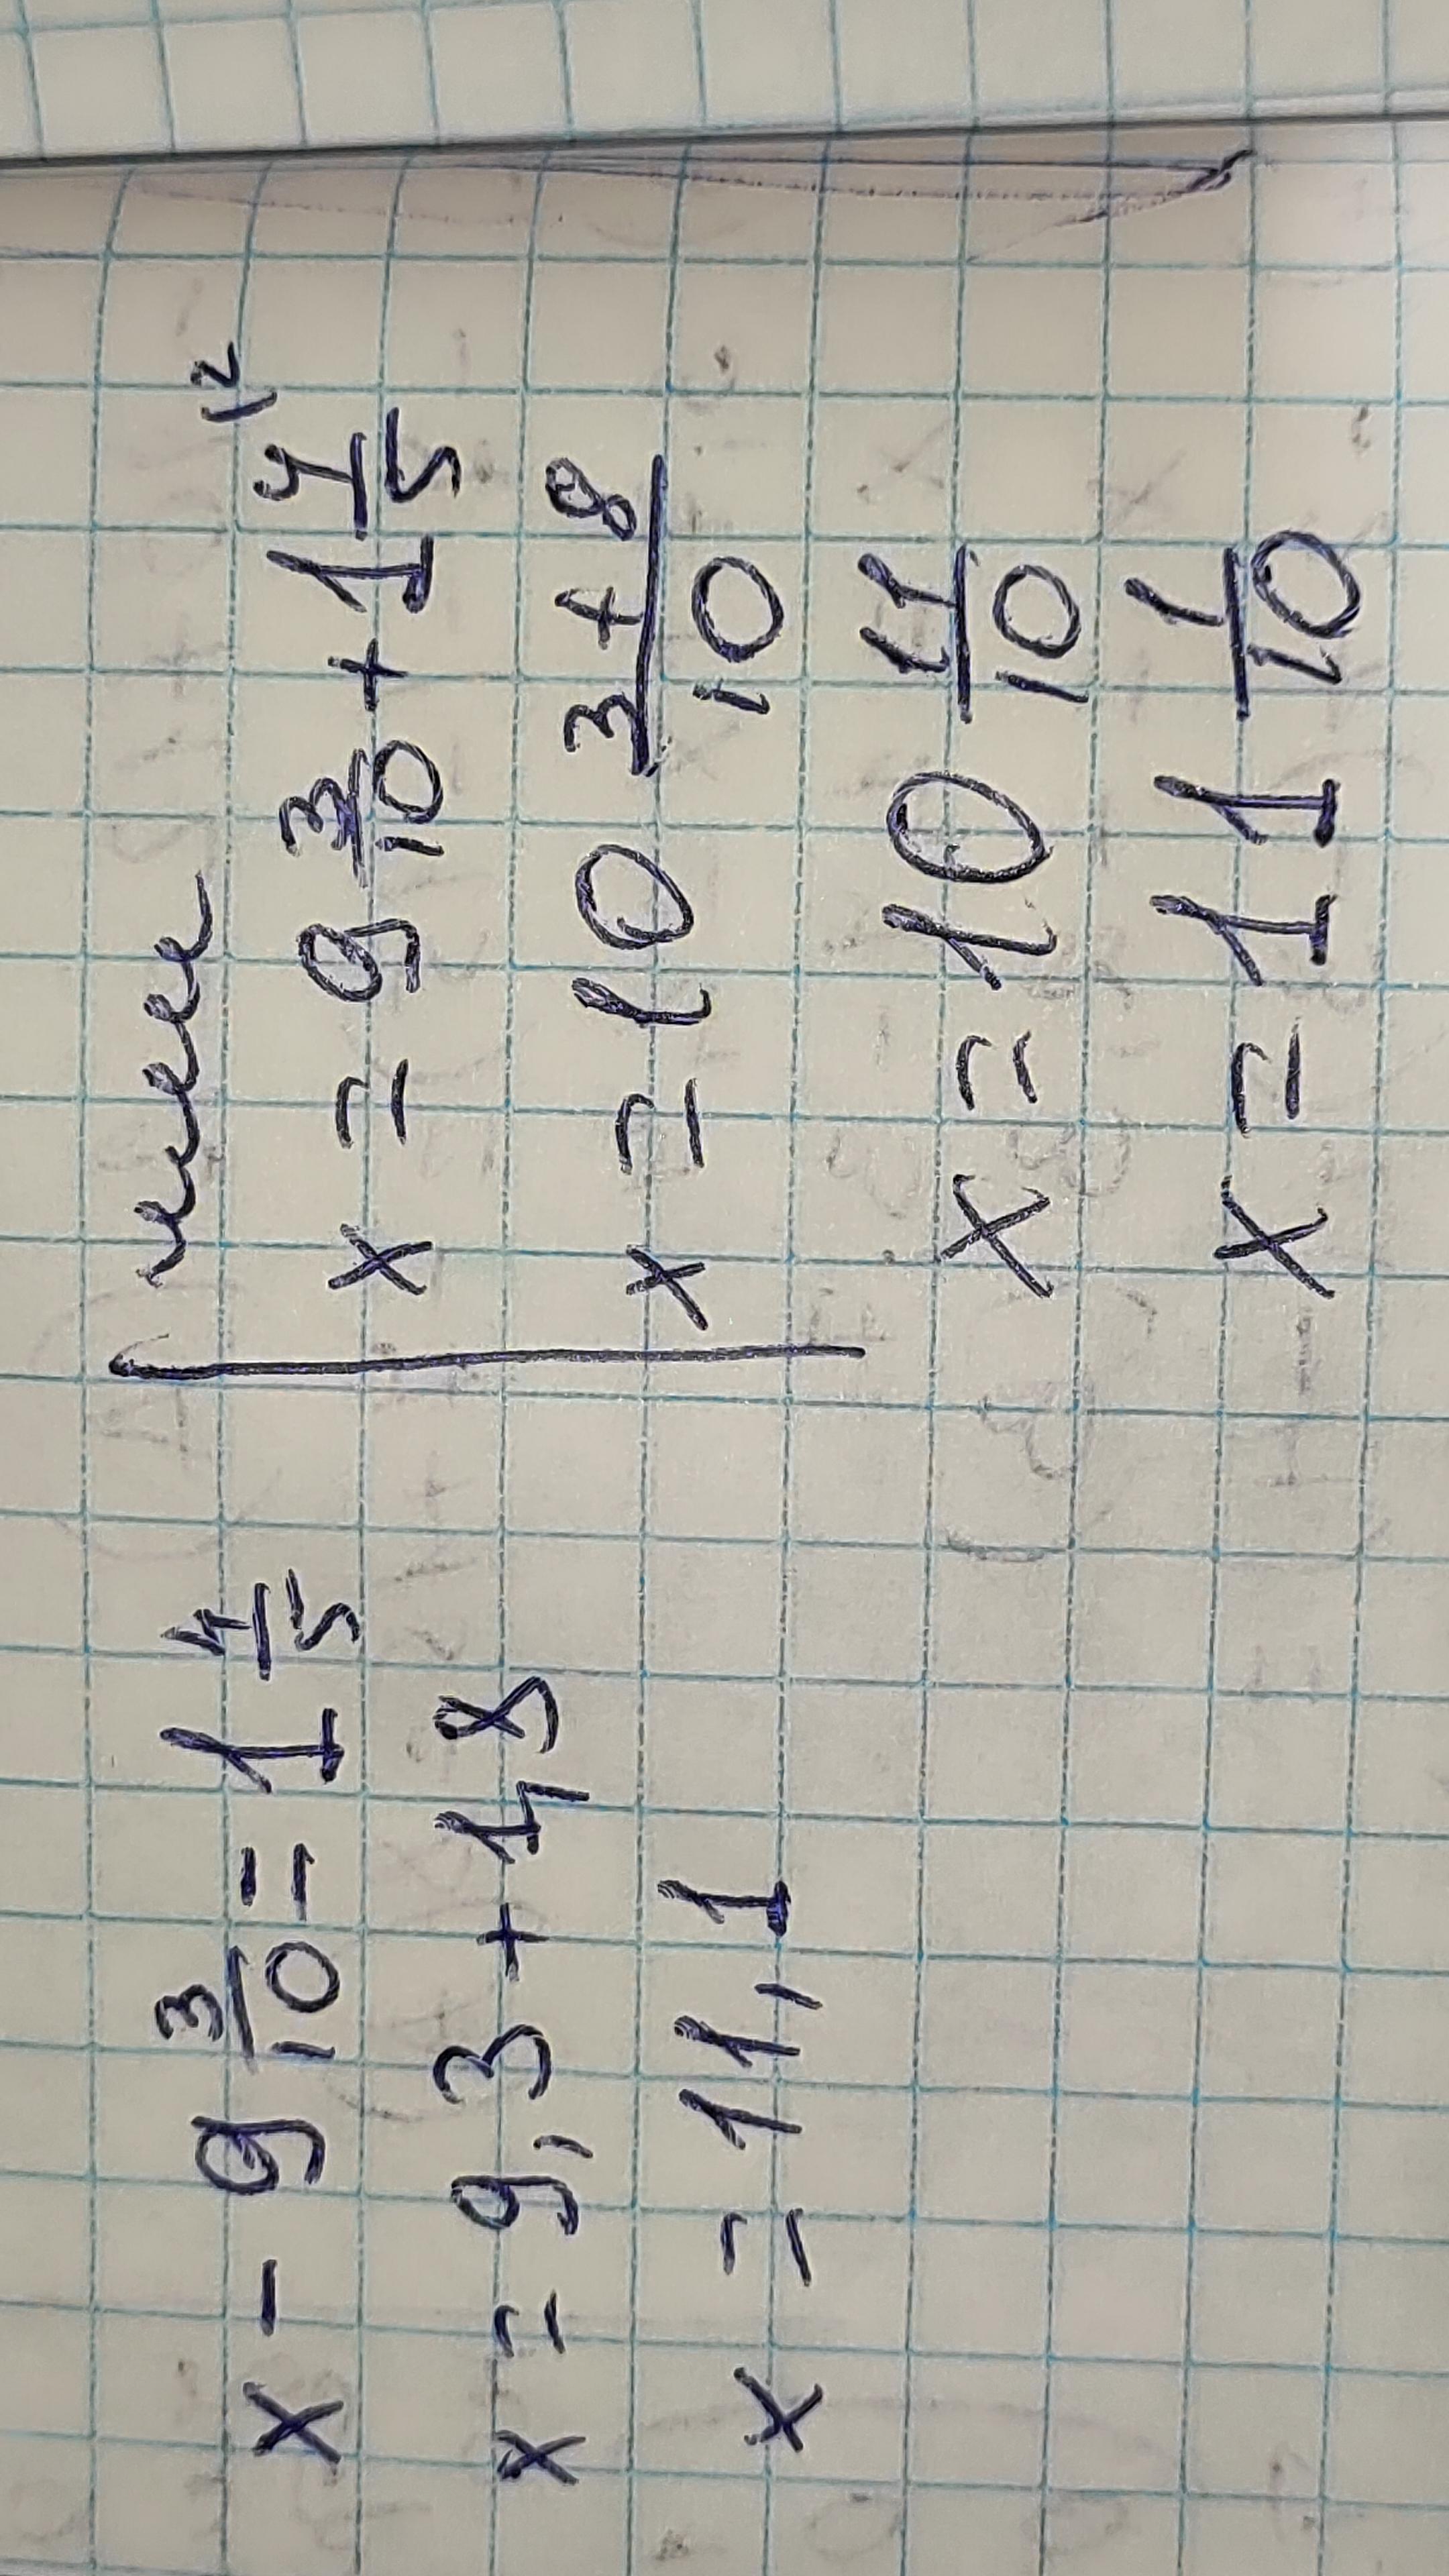 x - 9 3/10 = 1 4/5
x = 9,3 + 1,8
x = 11,1
или
x = 9 3/10 + 1 4/5 12
x = 10 3+8/10
x = 10 11/10
x = 11 1/10